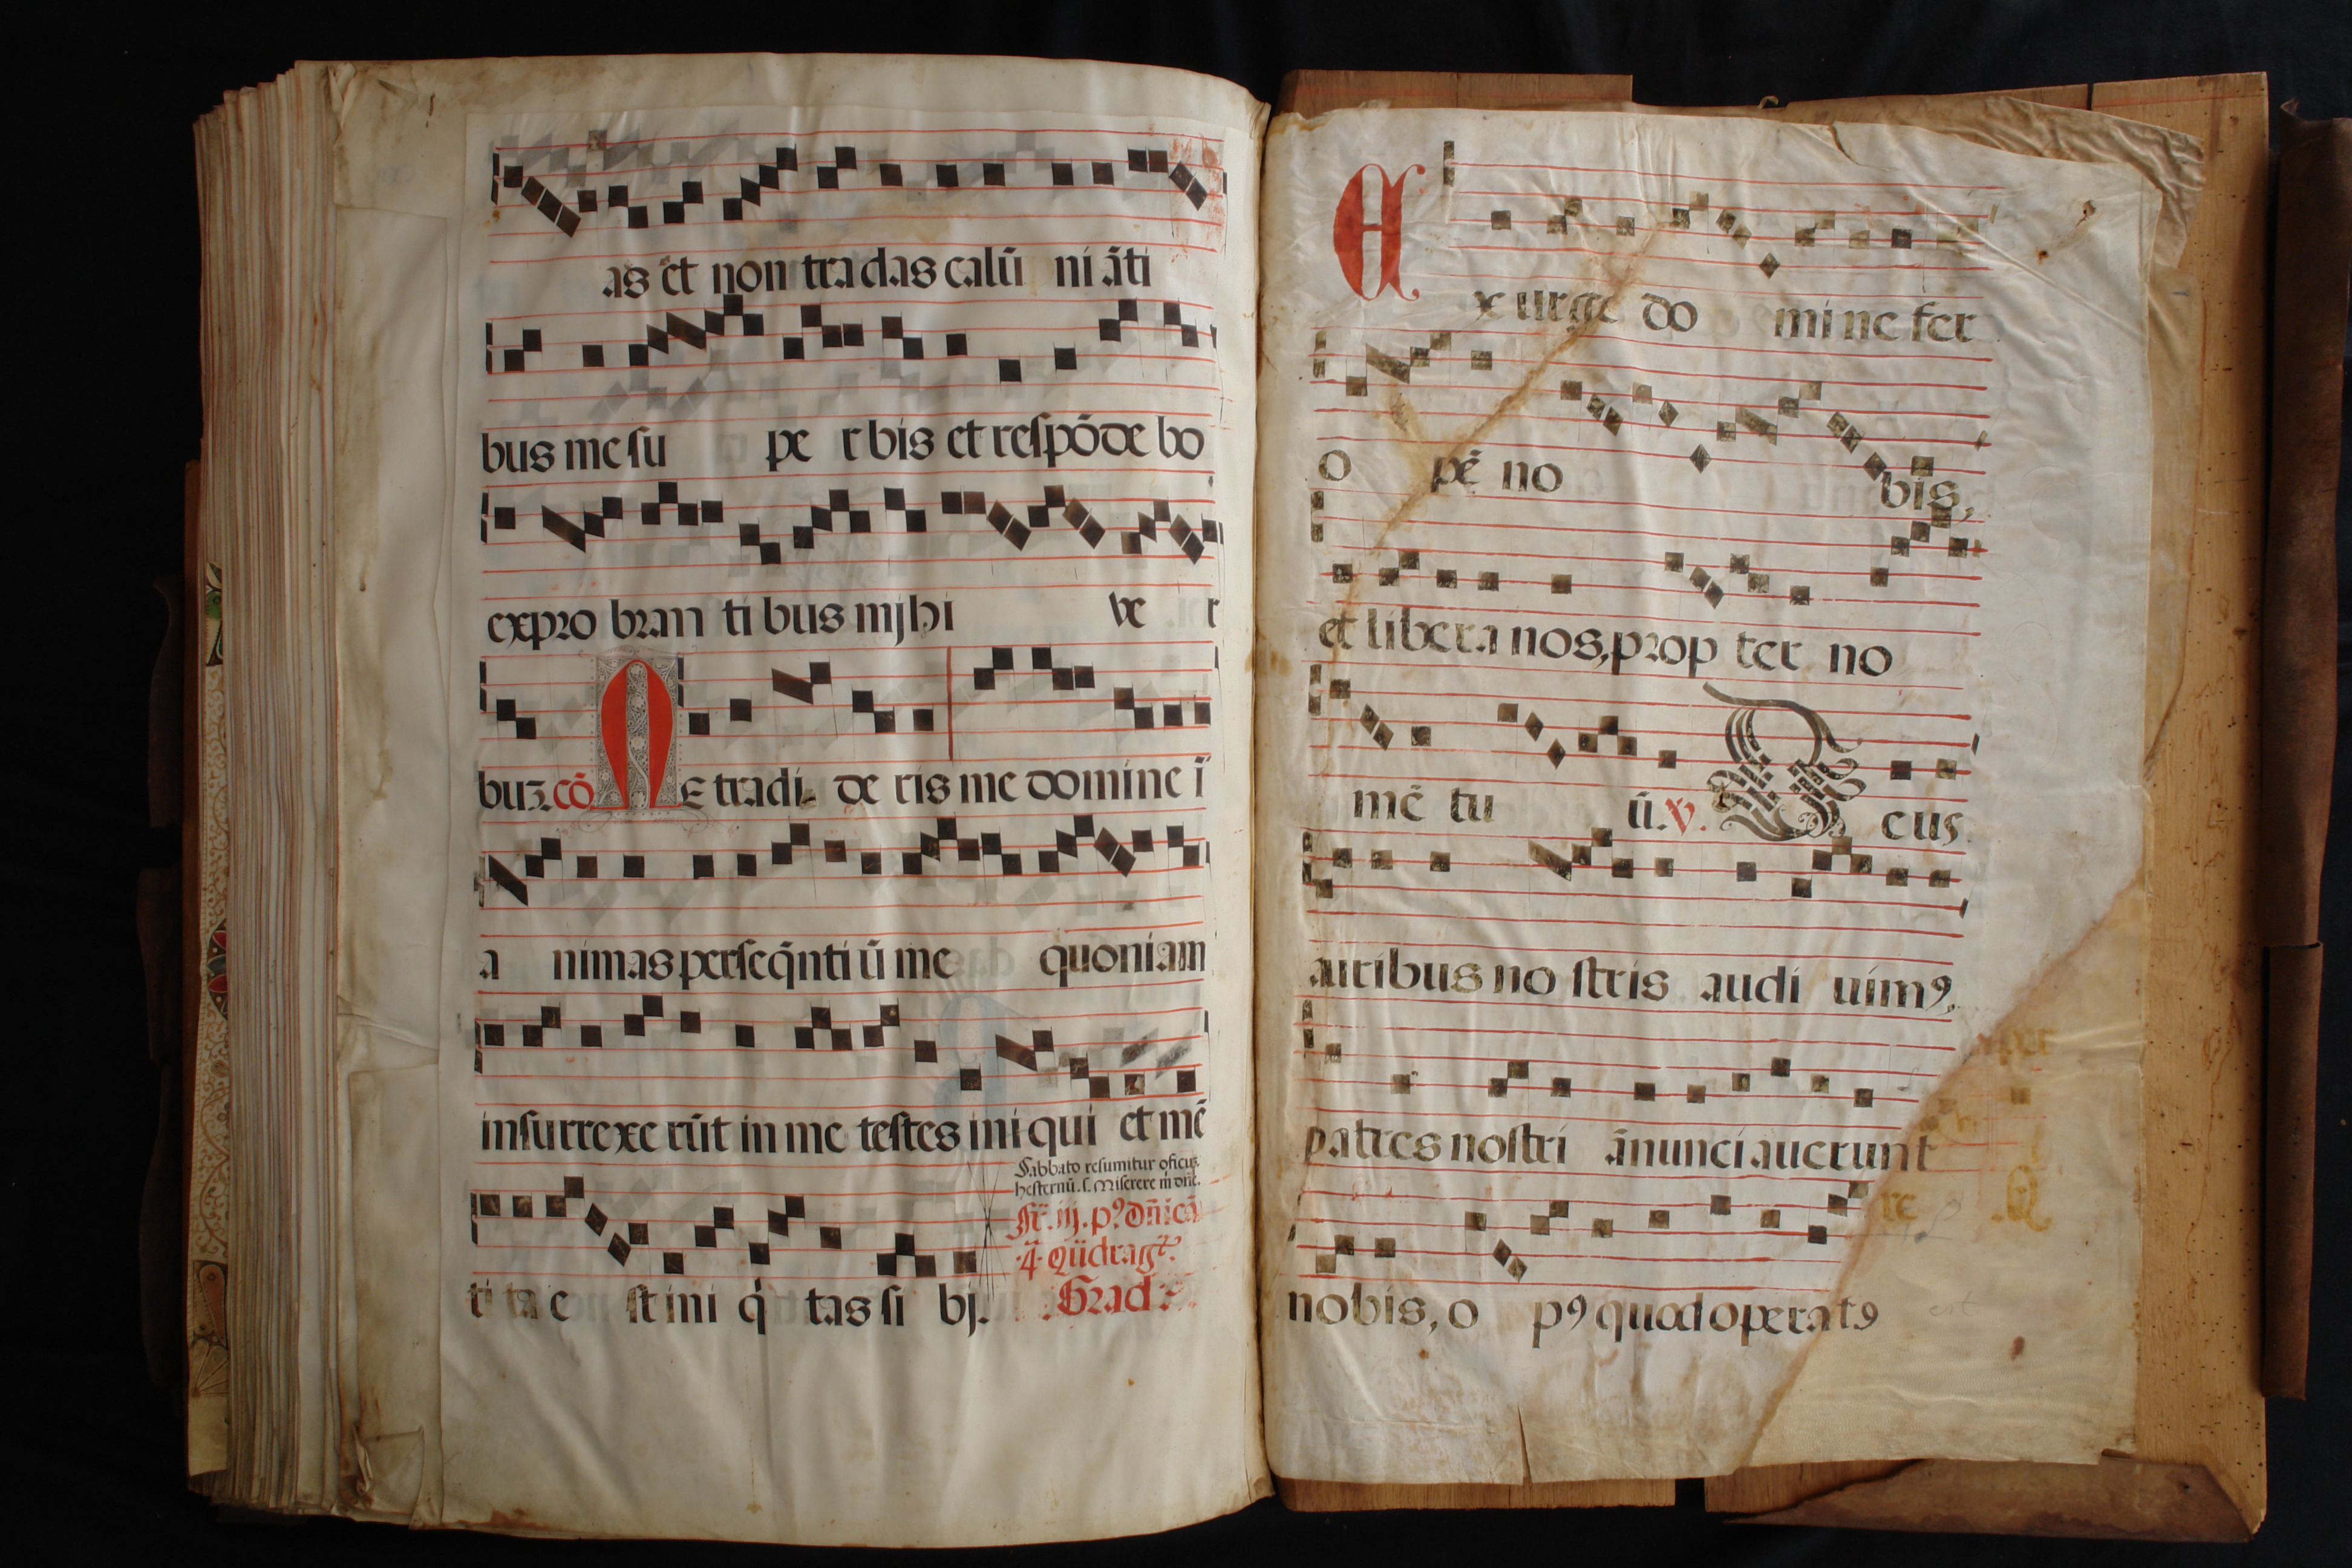 as et non tradas calū ni āti
bus me su pe r bis et respōde bo
expro bran ti bus mjhi ve r
buꝫ. cō NE tradi de ris me domine ī
a nimas perseq̄nti ū me quoniam
insurrexe rūt in me testes iniqui et mē
Sabbato resumitur oficiuꝫ
hesternū. s. Miserere m dn̄e.
iij. pꝰ dn̄icā
4. Quadrag
ti ta e st ini q tas si bj.
Grad
Exurge do mine fer
o pē no bis,
et libera nos, prop ter no
mē tu ū. v. Deus
auribus no stris audi uimꝰ.
patres nostri ānunciauerunt
nobis, o pꝰ quod operatꝰ
re
est